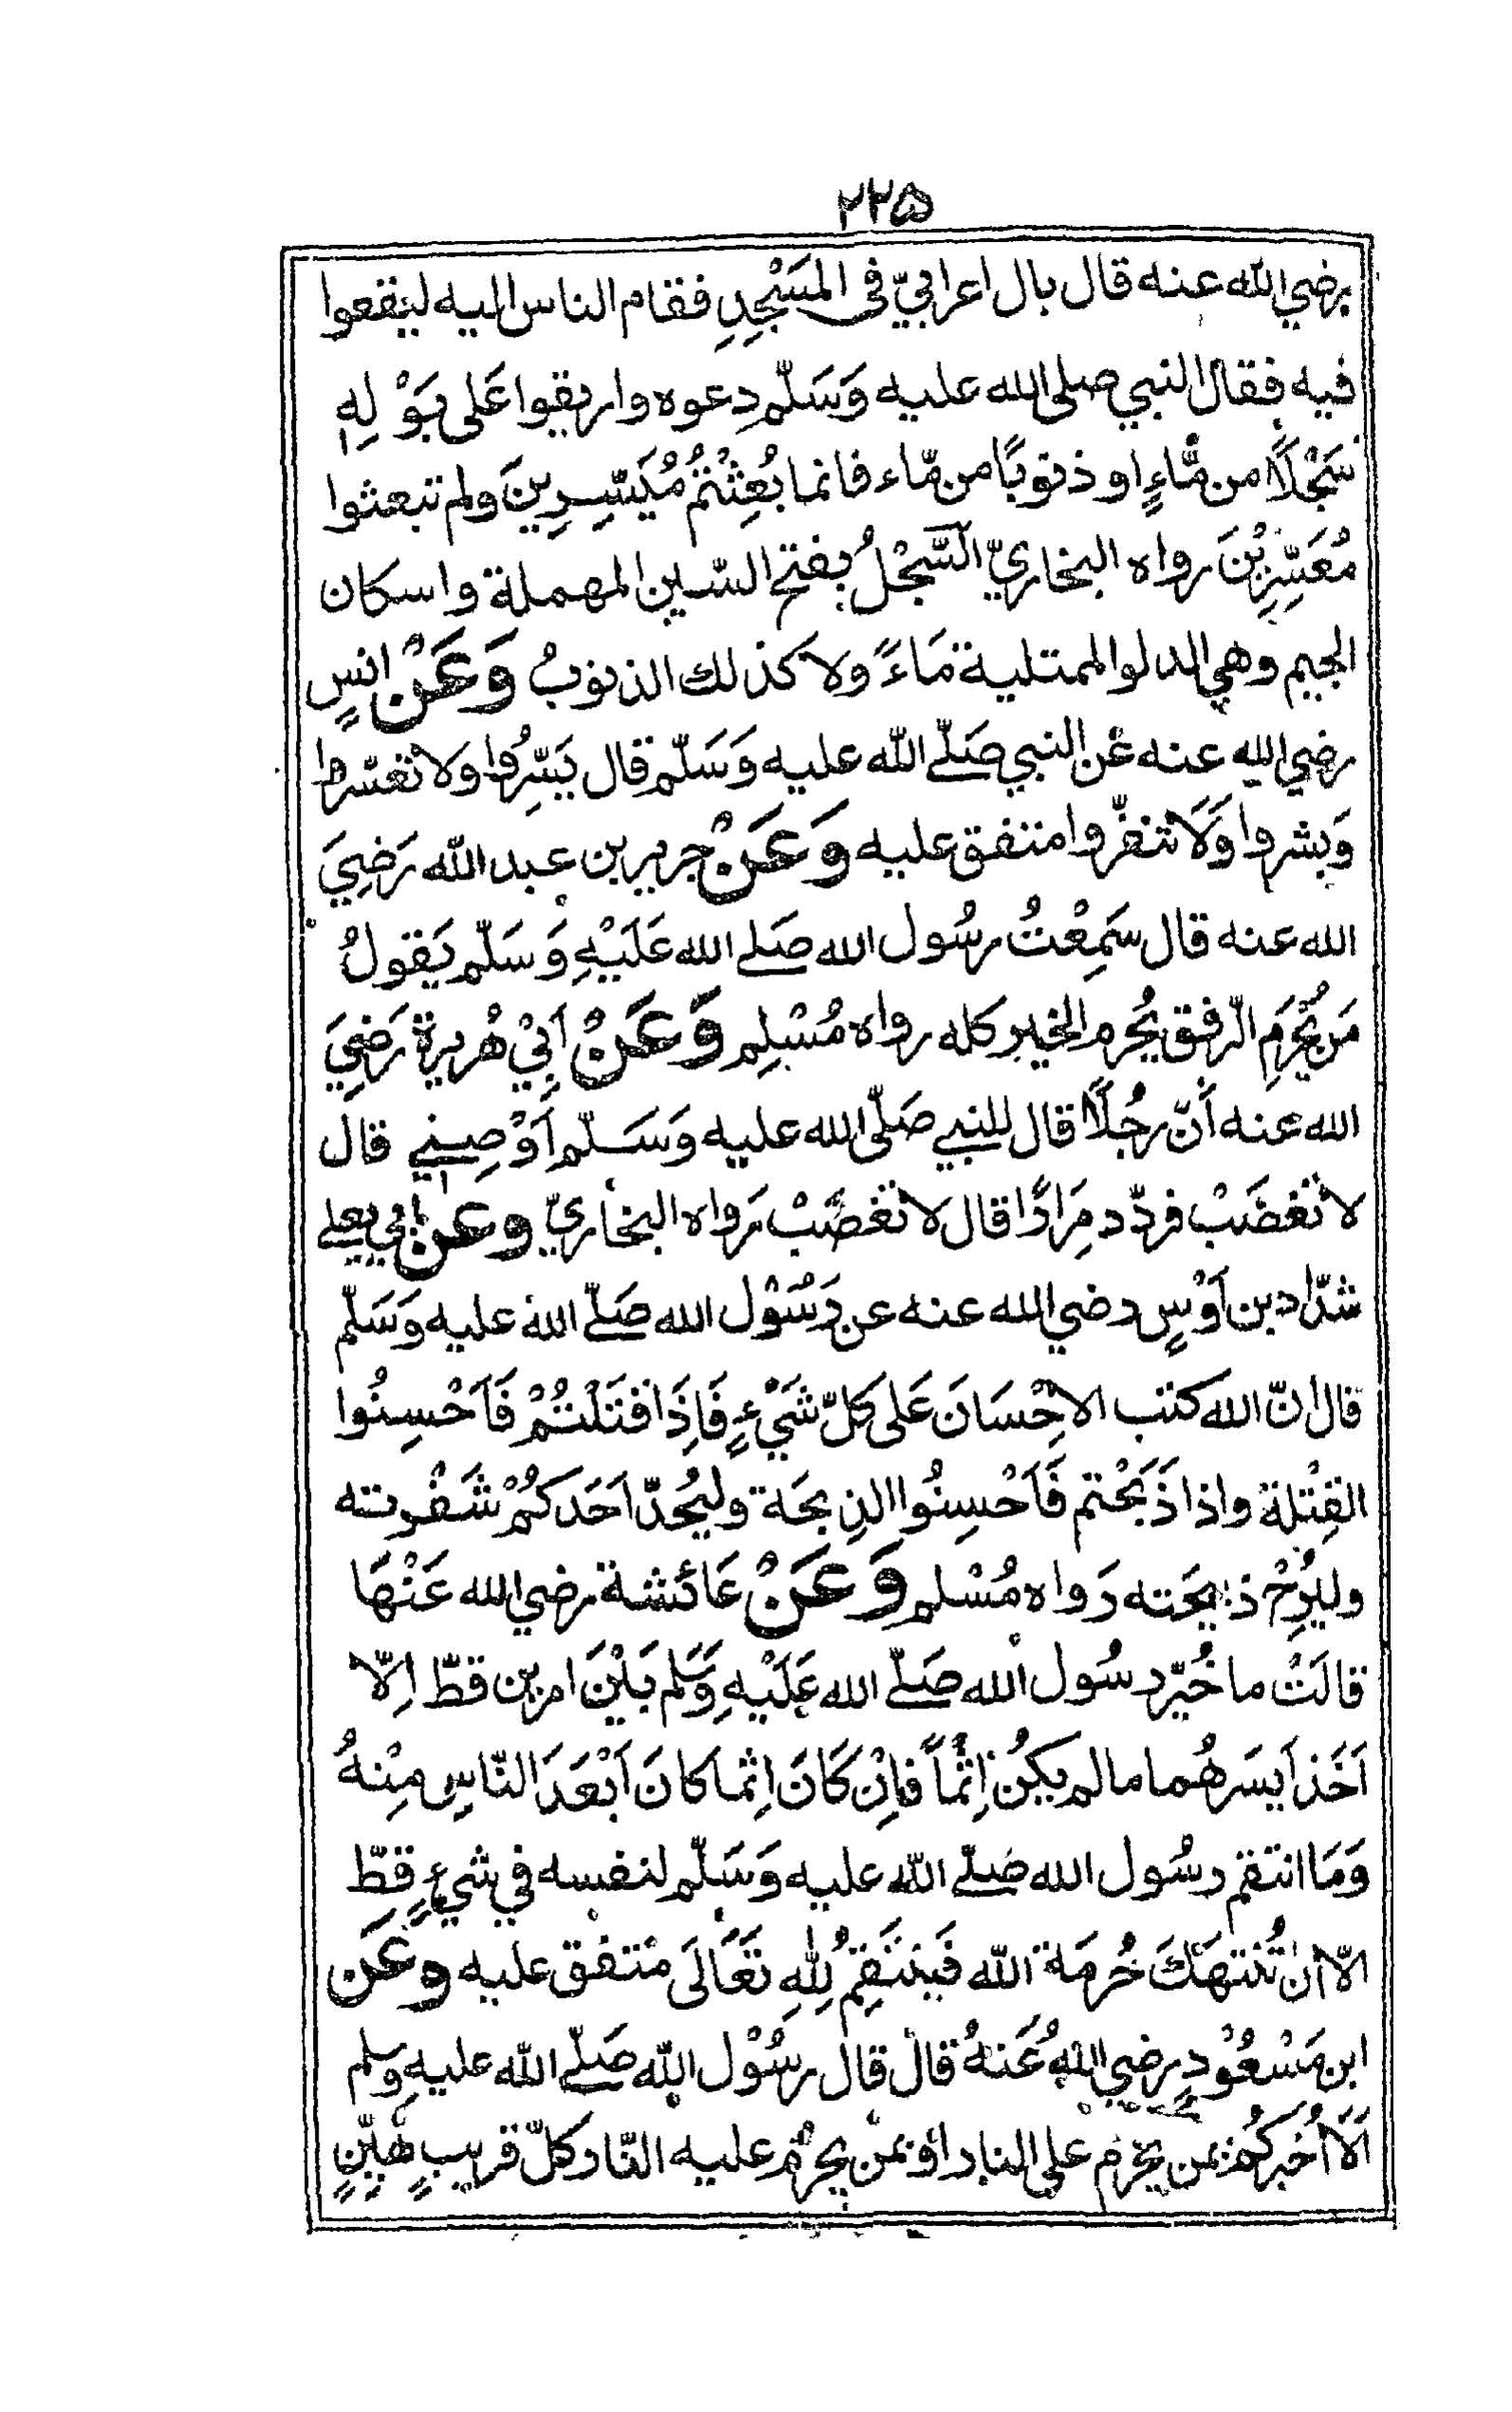 ٢٢٥
رضي الله عنه قال بال اعرابيّ فى المَسْجِدِ فقام الناس اليه ليَقعوا
فيه فقال النبي صلى الله عليه وَسَلّم دعوه واريقوا عَلى بَوْلِهِ
سَجْلًا من مّاءٍ او ذنوبًا من مّاء فانما بُعِثْتُمْ مُيَسِّرِينَ ولم تبعثوا
مُعَسِّرِيْنَ رواه البخاريّ السَّجْلُ بفتح السّين المهملة واسكان
الجيم وهي الدلو الممتلية مَاءً ولا كذلك الذنوبُ وَعَنْ انسٍ
رضي الله عنه عَن النبي صَلّے الله عليه وَسَلّم قال يَسِّرُوا ولا تعسّروا
وَبشروا وَلَا تنفّروا متفق عليه وَعَنْ جرير بن عبد الله رَضِيَ
الله عنه قال سَمِعْتُ رسُول الله صَلے الله عَلَيْهِ وَسَلّم يَقولُ
مَن يُحْرَمِ الرّفق يُحْرم الخير كله رواه مُسْلِم وَعَنْ اَبِيْ هُريرة رَضِيَ
الله عنه اَنّ رجُلًا قال للنبي صَلّى الله عليه وَسَلّم اَوْصِنِي قال
لا تَغضَبْ فردّد مِرَارًا قال لا تَغضَبْ رَواه البخاريّ وعن ابي يعلے
شدّاد بن اَوْسٍ رضي الله عنه عن رَسُوْل الله صَلّے الله عليه وَسَلّم
قال انّ الله كتب الاِحْسَانَ عَلى كلّ شَيْءٍ فَاِذَا قَتَلْتُمْ فَاَحْسِنُوا
القِتْلة واذا ذَبَحْتم فَاَحْسِنُوا الذِبحَة وليُحِدّ اَحَدكُمْ شَفْرته
وليُرِحْ ذبيحَته رَواه مُسْلم وَعَنْ عَائشة رضي الله عَنْهَا
قالَتْ ما خُيّر رسُول الله صَلّے الله عَلَيْهِ وَسَلم بَيْنَ امرين قطّ اِلّا
اَخَذ اَيسَرهُما ما لم يكنْ اِثْماً فاِنْ كَانَ اِثما كانَ اَبْعَدَ النّاسِ مِنْهُ
وَمَا انتقم رسُول الله صَلّے الله عليه وَسَلّم لنفسه في شيءٍ قطّ
الّا ان تُنتهَكَ حُرمَة الله فَينتَقِمُ لِلّهِ تَعَالَى مُتفق عليه وعَن
ابن مَسْعُوْدٍ رضي اللهُ عَنهُ قال قال رسُوْل الله صَلّے الله عليه وسلم
اَلَا اُخبركُمْ بمن يحرُم على النار او بمن يحرُم عليه النّار كلّ قريبٍ هَيّنٍ